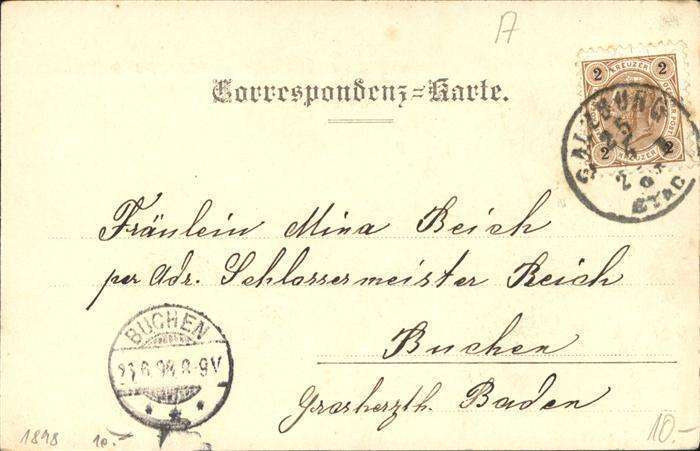 A
Correspondenz=Karte.
2 KREUZER 2
2 KREUZER 2
SALZBURG
STADT
Fräulein Mina Beich
per Adr. Schlossermeister Reich
Buchen
Grosherzth. Baden
BUCHEN
8-9V
1898 10.-
10.-